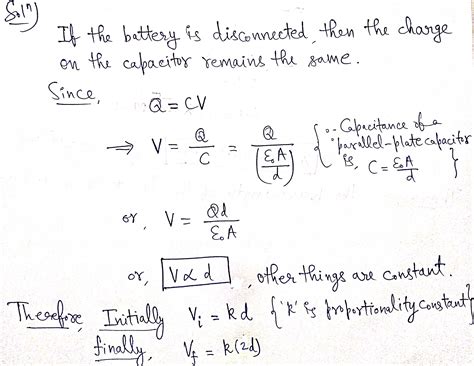 Sol(n)
If the battery is disconnected, then the charge
on the capacitor remains the same.
Since,
Q = CV
⇒ V = Q/C = Q/(ε₀A/d) {∵ Capacitance of a parallel-plate capacitor is, C = ε₀A/d}
or, V = Qd/ε₀A
or, V ∝ d, other things are constant.
Therefore, Initially V_i = kd {'k' is proportionality constant}
finally, V_f = k(2d)